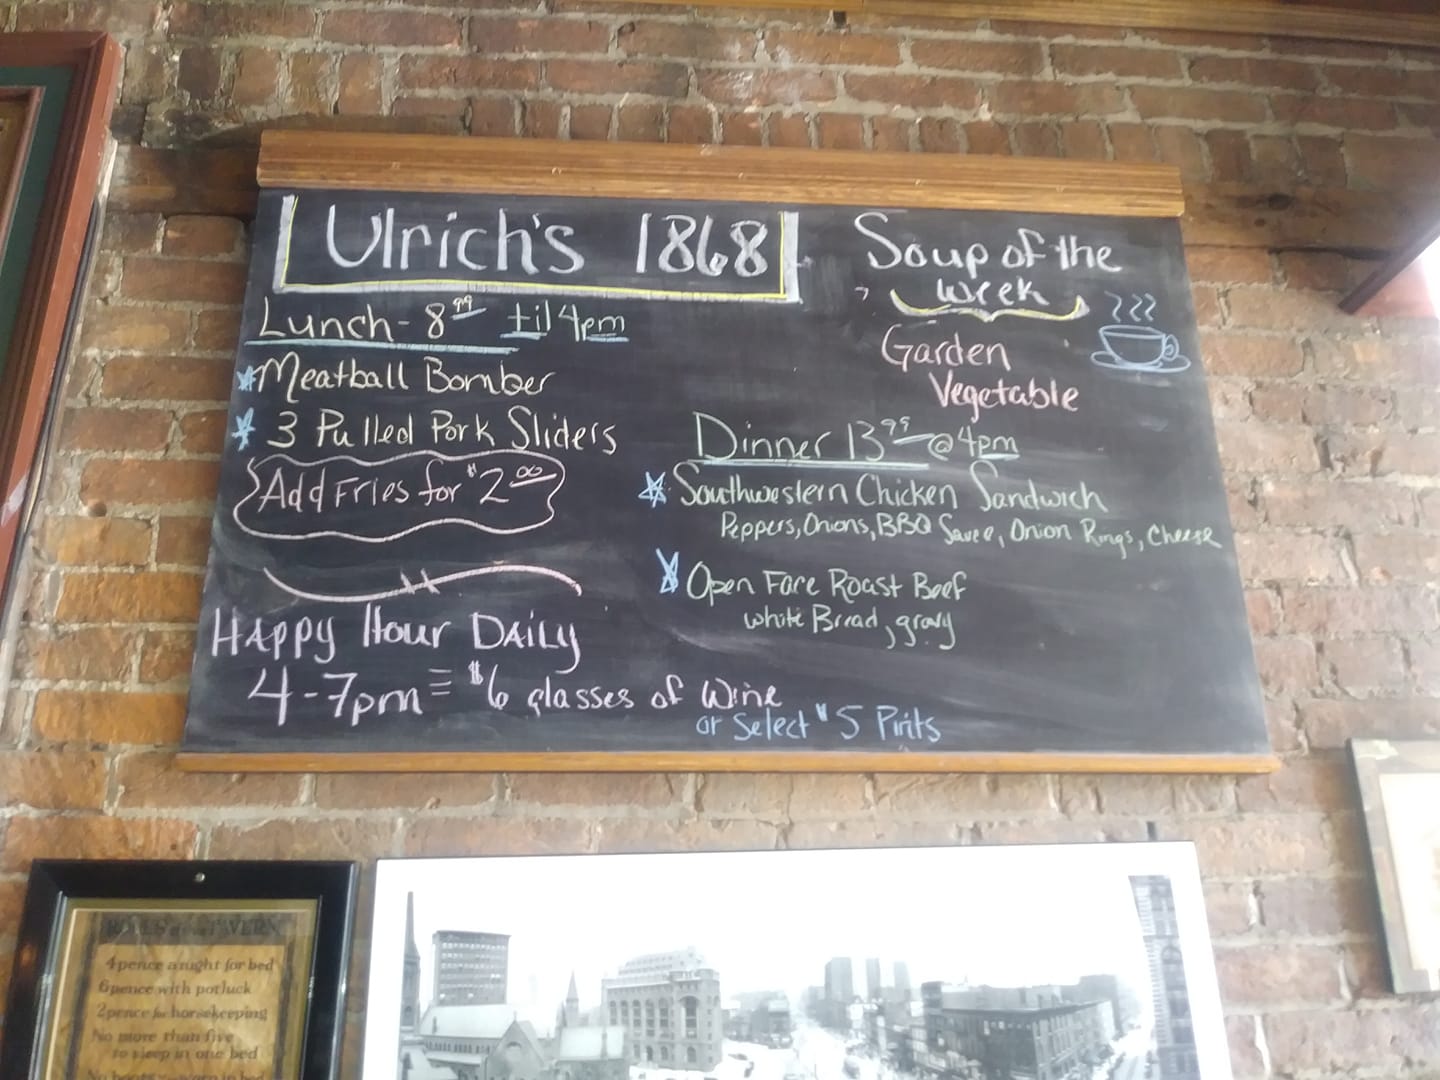 Ulrich's 1868
Lunch - 8.99 til 4pm
Meatball Bomber
3 Pulled Pork Sliders
Add Fries for $2.00
Happy Hour Daily
4-7pm $6 glasses of Wine
or Select $5 Pints
Soup of the
Week
Garden
Vegetable
Dinner 13.99 @ 4pm
Southwestern Chicken Sandwich
Peppers, Onions, BBQ Sauce, Onion Rings, Cheese
Open Face Roast Beef
white Bread, gravy
RULES of this TAVERN
4 pence a night for bed
6 pence with potluck
2 pence for horsekeeping
No more than five
to sleep in one bed
No boots worn in bed